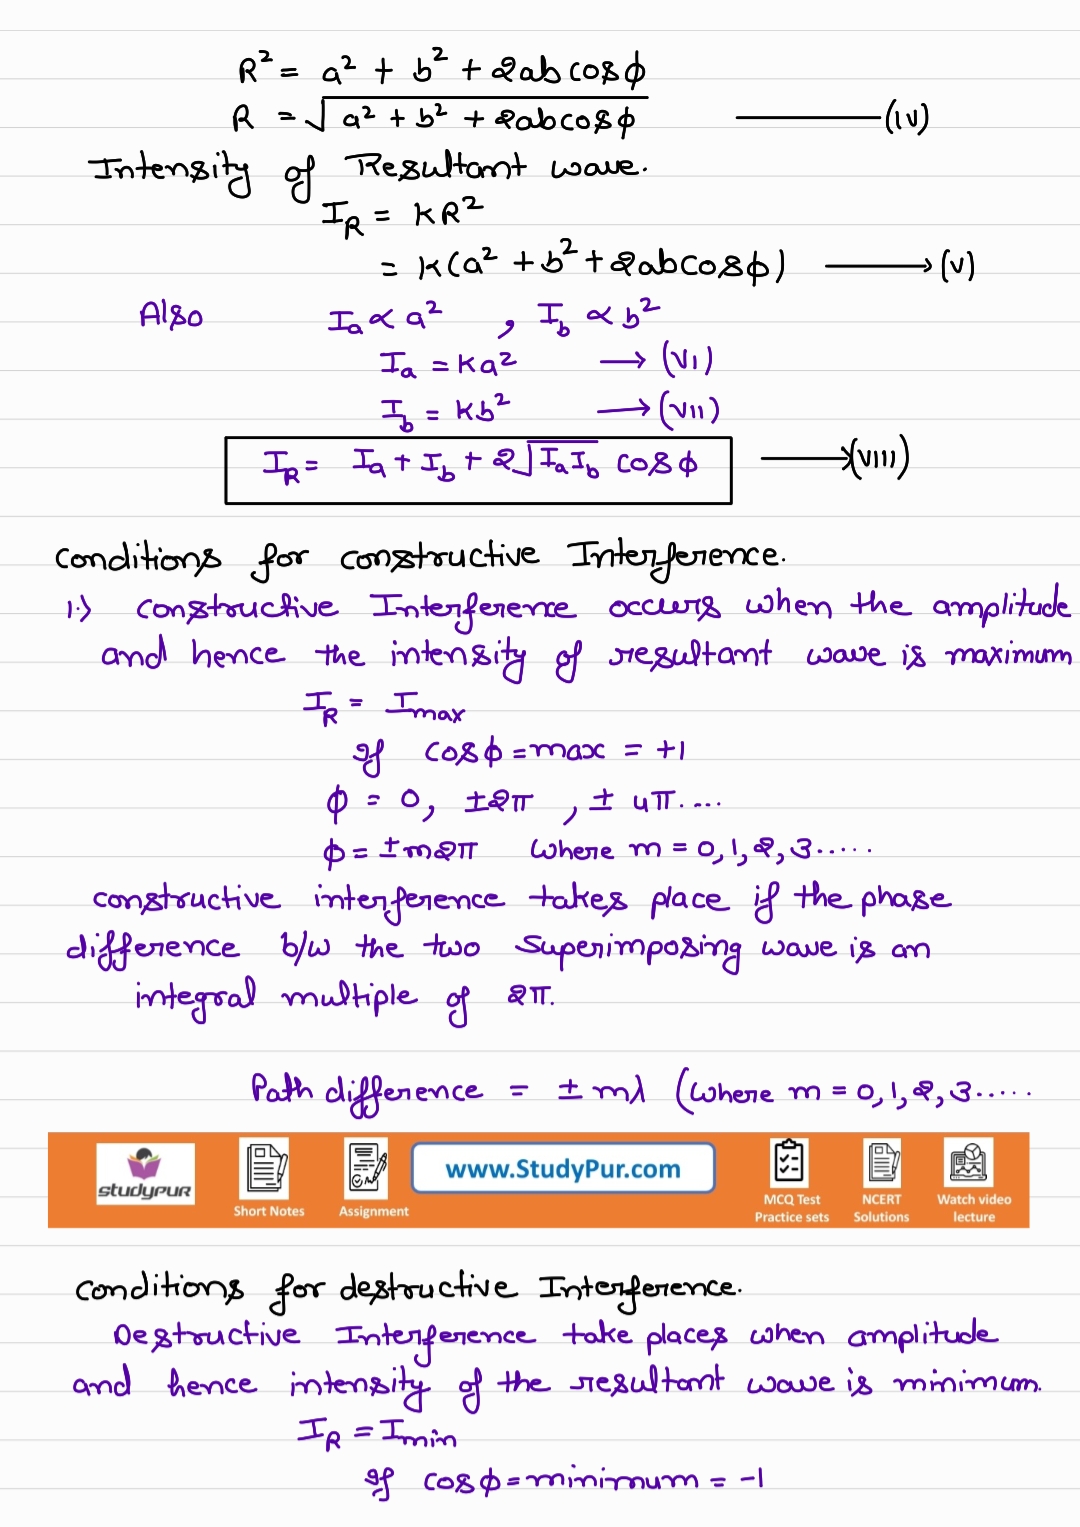 R² = a² + b² + 2ab cosϕ
R = √(a² + b² + 2abcosϕ) ——— (iv)
Intensity of Resultant wave.
I_R = KR²
= K(a² + b² + 2abcosϕ) ——→ (v)
Also I_a ∝ a² , I_b ∝ b²
I_a = Ka² → (vi)
I_b = Kb² → (vii)
I_R = I_a + I_b + 2√(I_a I_b) cosϕ ——→ (viii)
conditions for constructive Interference.
1.) constructive Interference occurs when the amplitude
and hence the intensity of resultant wave is maximum
I_R = I_max
If cosϕ = max = +1
ϕ = 0, ±2π , ± 4π....
ϕ = ±m2π where m = 0,1,2,3.....
constructive interference takes place if the phase
difference b/w the two superimposing wave is an
integral multiple of 2π.
Path difference = ± mλ (where m = 0,1,2,3.....
studypur
Short Notes
Assignment
www.StudyPur.com
MCQ Test
Practice sets
NCERT
Solutions
Watch video
lecture
conditions for destructive Interference.
Destructive Interference take places when amplitude
and hence intensity of the resultant wave is minimum.
I_R = I_min
If cosϕ = minimum = -1